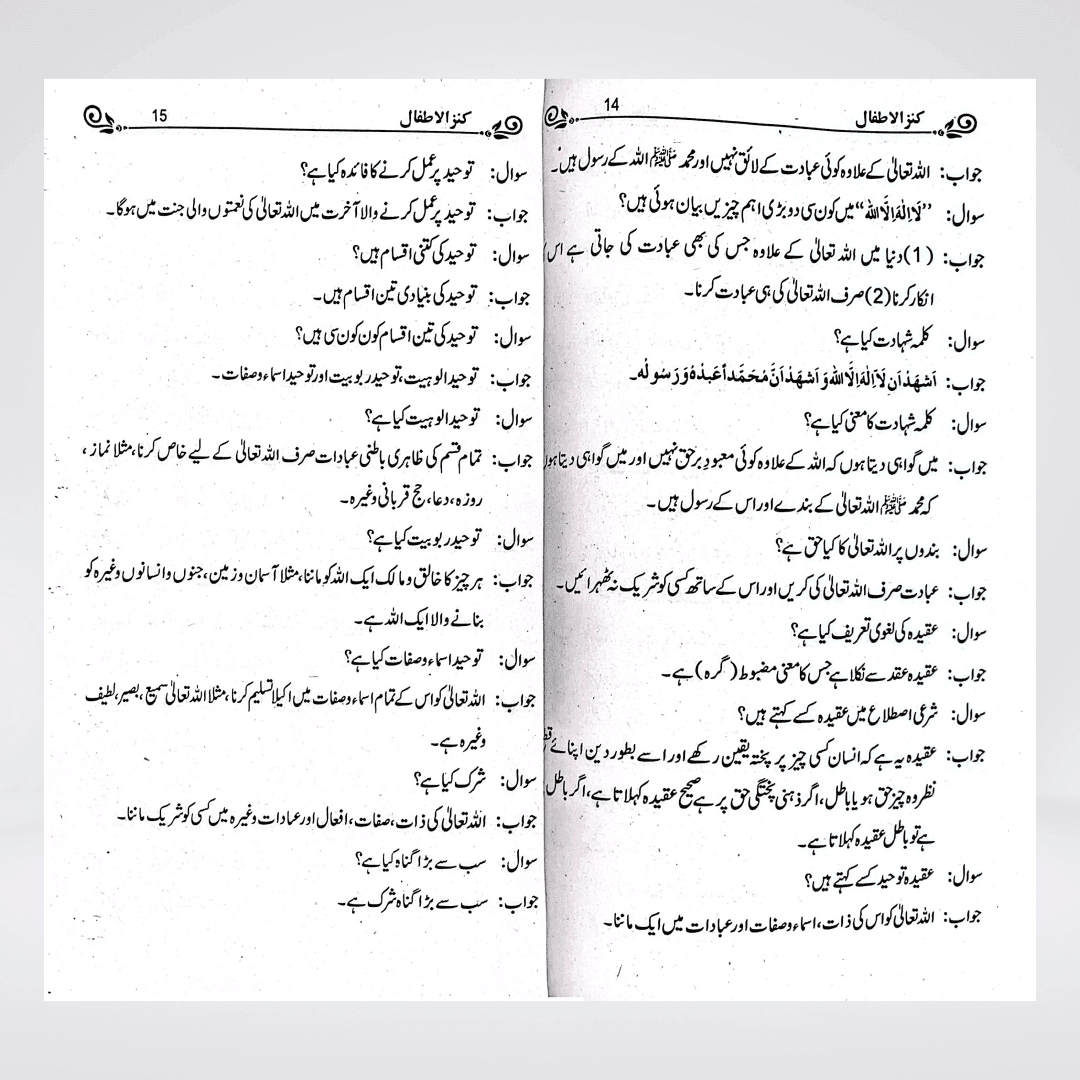 کنز الاطفال 14
جواب: اللہ تعالیٰ کے علاوہ کوئی عبادت کے لائق نہیں اور محمد ﷺ اللہ کے رسول ہیں۔
سوال: ”لَا اِلٰهَ اِلَّا اللّٰه“ میں کون سی دو بڑی اہم چیزیں بیان ہوئی ہیں؟
جواب: (1) دنیا میں اللہ تعالیٰ کے علاوہ جس کی بھی عبادت کی جاتی ہے اس
انکار کرنا (2) صرف اللہ تعالیٰ کی ہی عبادت کرنا۔
سوال: کلمہ شہادت کیا ہے؟
جواب: اَشْهَدُ اَن لَّا اِلٰهَ اِلَّا اللّٰه وَ اَشْهَدُ اَنَّ مُحَمَّداً عَبدُهُ وَ رَسُولُه۔
سوال: کلمہ شہادت کا معنی کیا ہے؟
جواب: میں گواہی دیتا ہوں کہ اللہ کے علاوہ کوئی معبودِ برحق نہیں اور میں گواہی دیتا ہوں
کہ محمد ﷺ اللہ تعالیٰ کے بندے اور اس کے رسول ہیں۔
سوال: بندوں پر اللہ تعالیٰ کا کیا حق ہے؟
جواب: عبادت صرف اللہ تعالیٰ کی کریں اور اس کے ساتھ کسی کو شریک نہ ٹھہرائیں۔
سوال: عقیدہ کی لغوی تعریف کیا ہے؟
جواب: عقیدہ عقد سے نکلا ہے جس کا معنی مضبوط (گرہ) ہے۔
سوال: شرعی اصطلاح میں عقیدہ کسے کہتے ہیں؟
جواب: عقیدہ یہ ہے کہ انسان کسی چیز پر پختہ یقین رکھے اور اسے بطور دین اپنائے
نظر وہ چیز حق ہو یا باطل، اگر ذہنی پختگی حق پر ہے صحیح عقیدہ کہلاتا ہے، اگر باطل
ہے تو باطل عقیدہ کہلاتا ہے۔
سوال: عقیدہ توحید کسے کہتے ہیں؟
جواب: اللہ تعالیٰ کو اس کی ذات، اسماء وصفات اور عبادات میں ایک ماننا۔
کنز الاطفال 15
سوال: توحید پر عمل کرنے کا فائدہ کیا ہے؟
جواب: توحید پر عمل کرنے والا آخرت میں اللہ تعالیٰ کی نعمتوں والی جنت میں ہوگا۔
سوال: توحید کی کتنی اقسام ہیں؟
جواب: توحید کی بنیادی تین اقسام ہیں۔
سوال: توحید کی تین اقسام کون کون سی ہیں؟
جواب: توحید الوہیت، توحید ربوبیت اور توحید اسماء وصفات۔
سوال: توحید الوہیت کیا ہے؟
جواب: تمام قسم کی ظاہری باطنی عبادات صرف اللہ تعالیٰ کے لیے خاص کرنا، مثلا نماز،
روزہ، دعا، حج قربانی وغیرہ۔
سوال: توحید ربوبیت کیا ہے؟
جواب: ہر چیز کا خالق و مالک ایک اللہ کو ماننا، مثلا آسمان و زمین، جنوں و انسانوں وغیرہ کو
بنانے والا ایک اللہ ہے۔
سوال: توحید اسماء وصفات کیا ہے؟
جواب: اللہ تعالیٰ کو اس کے تمام اسماء وصفات میں اکیلا تسلیم کرنا، مثلا اللہ تعالیٰ سمیع، بصیر، لطیف
وغیرہ ہے۔
سوال: شرک کیا ہے؟
جواب: اللہ تعالیٰ کی ذات، صفات، افعال اور عبادات وغیرہ میں کسی کو شریک ماننا۔
سوال: سب سے بڑا گناہ کیا ہے؟
جواب: سب سے بڑا گناہ شرک ہے۔